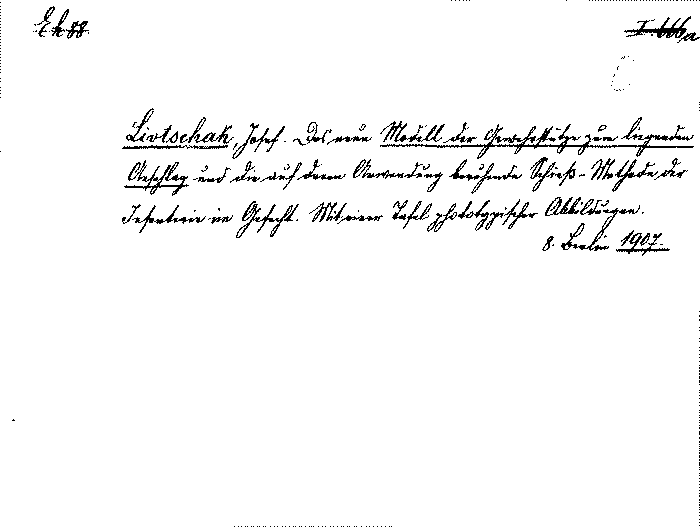 Eh 88
I. 666a
Livtschak, Josef. Das neue Modell der Gewehrstütze zum liegenden
Anschlag und die auf deren Anwendung beruhende Schieß-Methode der
Infanterie im Gefecht. Mit einer Tafel phototypischer Abbildungen.
8. Berlin 1907.